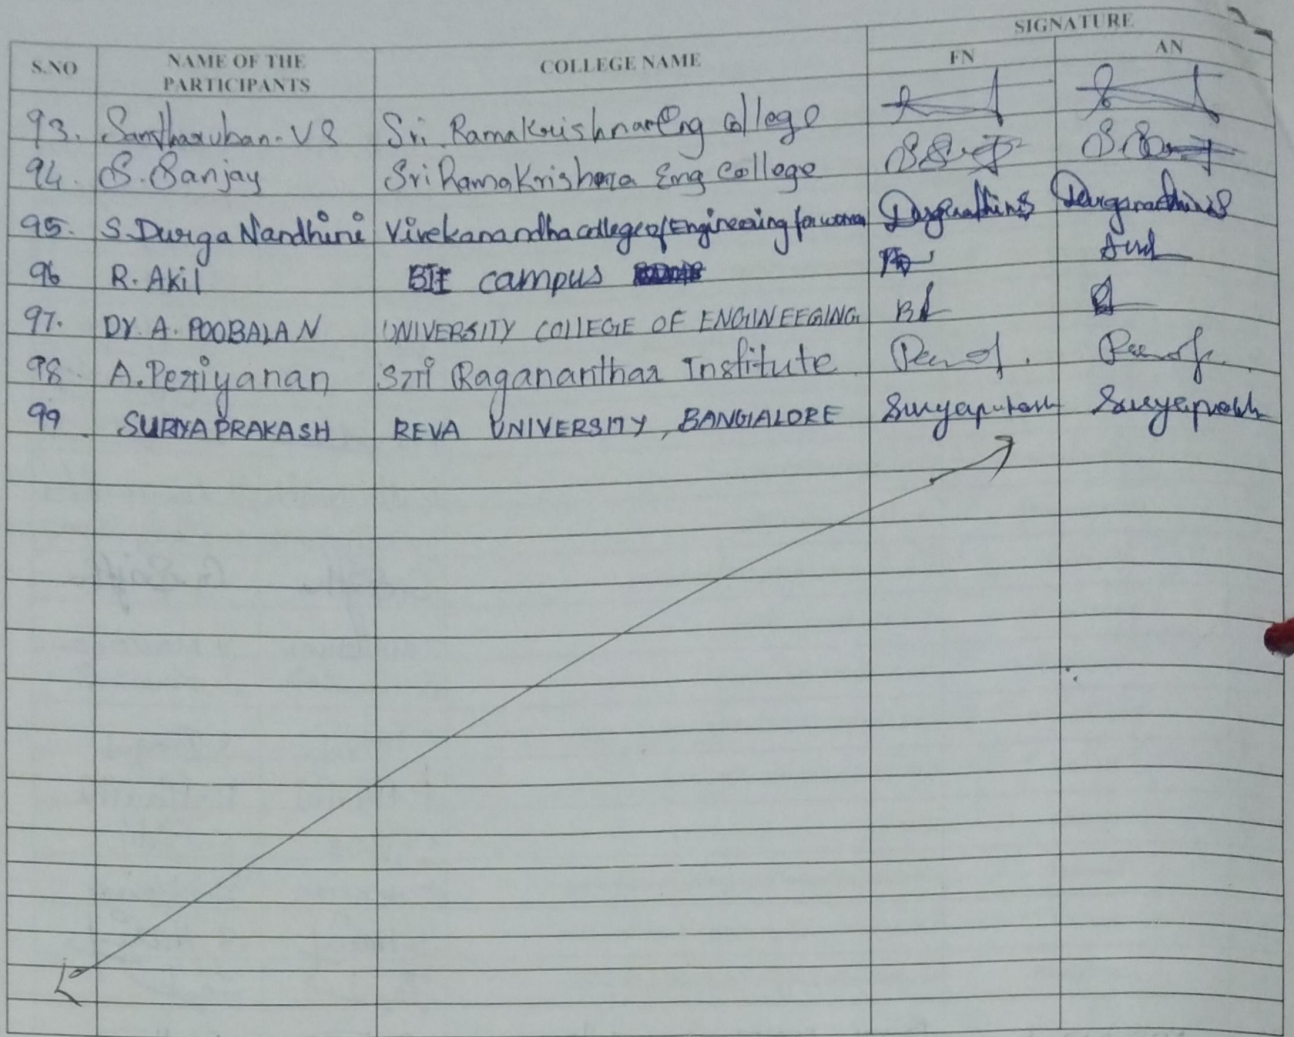 SIGNATURE
S.NO NAME OF THE PARTICIPANTS COLLEGE NAME FN AN
93. Santharuban-VS Sri Ramakrishna Eng College
94. S. Sanjay Sri Ramakrishna Eng College
95. S. Durga Nandhini Vivekanandha college of Engineering for women
96 R. Akil BIT campus
97. Dr. A. POOBALAN UNIVERSITY COLLEGE OF ENGINEEGING
98. A. Periyanan Sri Ragananthar Institute
99 SURIYAPRAKASH REVA UNIVERSITY, BANGALORE Suryaprakash Suryaprakash